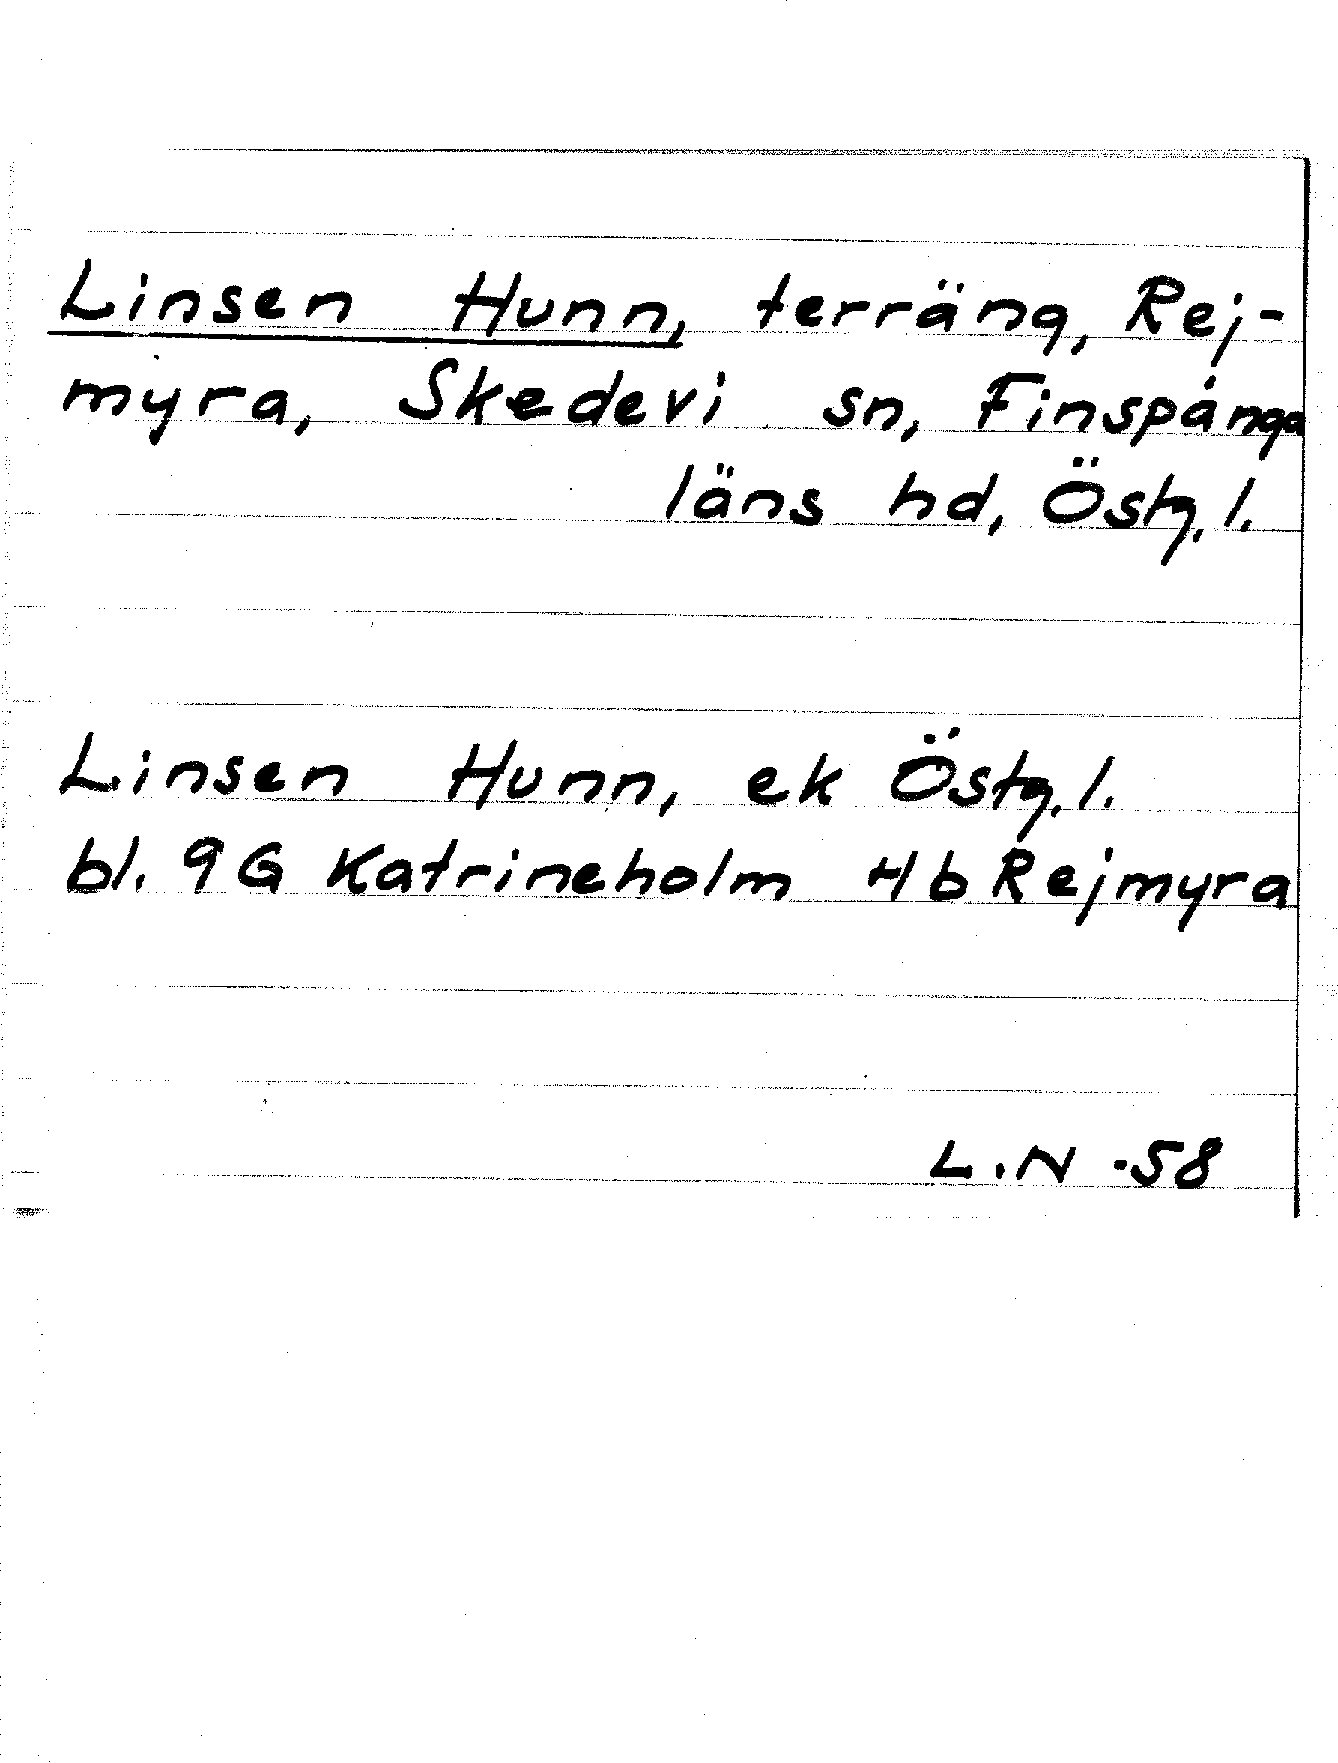 Linsen Hunn, terräng, Rej-
myra, Skedevi sn, Finspånga
läns hd, Östg. l.
Linsen Hunn, ek Östg. l.
bl. 9G Katrineholm 4b Rejmyra
L.N -58